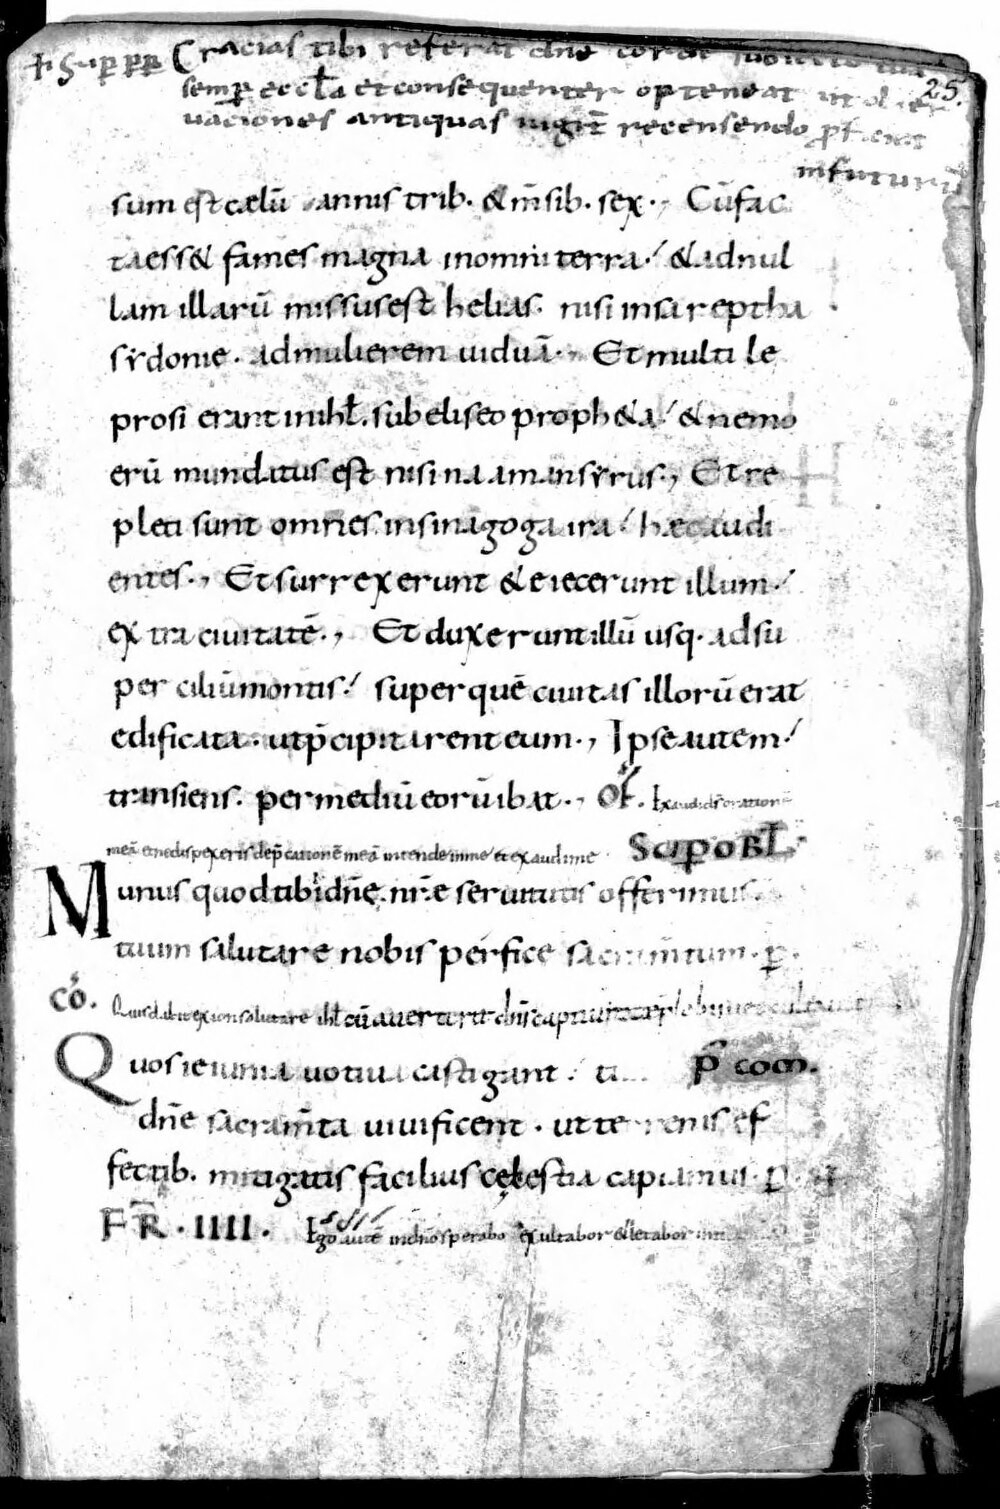 Gracias tibi referat dñe corde
25.
semꝑ eccła et consequenter opteneat ut
uaciones antiquas recensendo
in futurũ
sum est cælũ annis trib. & m̃sib. sex., Cũ fac
ta ess& fames magna inomni terra. & ad nul
lam illarũ missus est helias. nisi insareptha
sydonie. ad mulierem uiduã., Et multi le
prosi erant inihł. sub eliseo proph&a & nemo
erũ mundatus est nisi naaman syrus., Et re
pleti sunt omnes insinagoga ira hæc audi
entes., Et surrexerunt & eiecerunt illum.
extra ciuitatẽ., Et duxerunt illũ usq. ad su
per ciliũ montis. super quẽ ciuitas illorũ erat
edificata. ut p̃cipitarent eum., Ipse autem
transiens. per mediũ eorũ ibat., Of. Exaudi ds̃ orationẽ
meã et ne dispexeris dep̃cationẽ meã intende in me et exaudi me
Suꝑ oBł
Munus quod tibi dñe. nr̃e seruitutis offerimus.
tuum salutare nobis perfice sacram̃tum. ꝑ.
Cõ. Quis dabit ex ion salutare ihł cũ auerterit dñs captiuitatẽ plebis
Quos ieiunia uotiua castigant
p̃ com.
dñe sacram̃ta uiuificent. ut terrenis ef
fectib. mitigatis facilius cęlestia capiamus. ꝑ.
FR̃. IIII. Ego autẽ indño sperabo exultabor & letabor